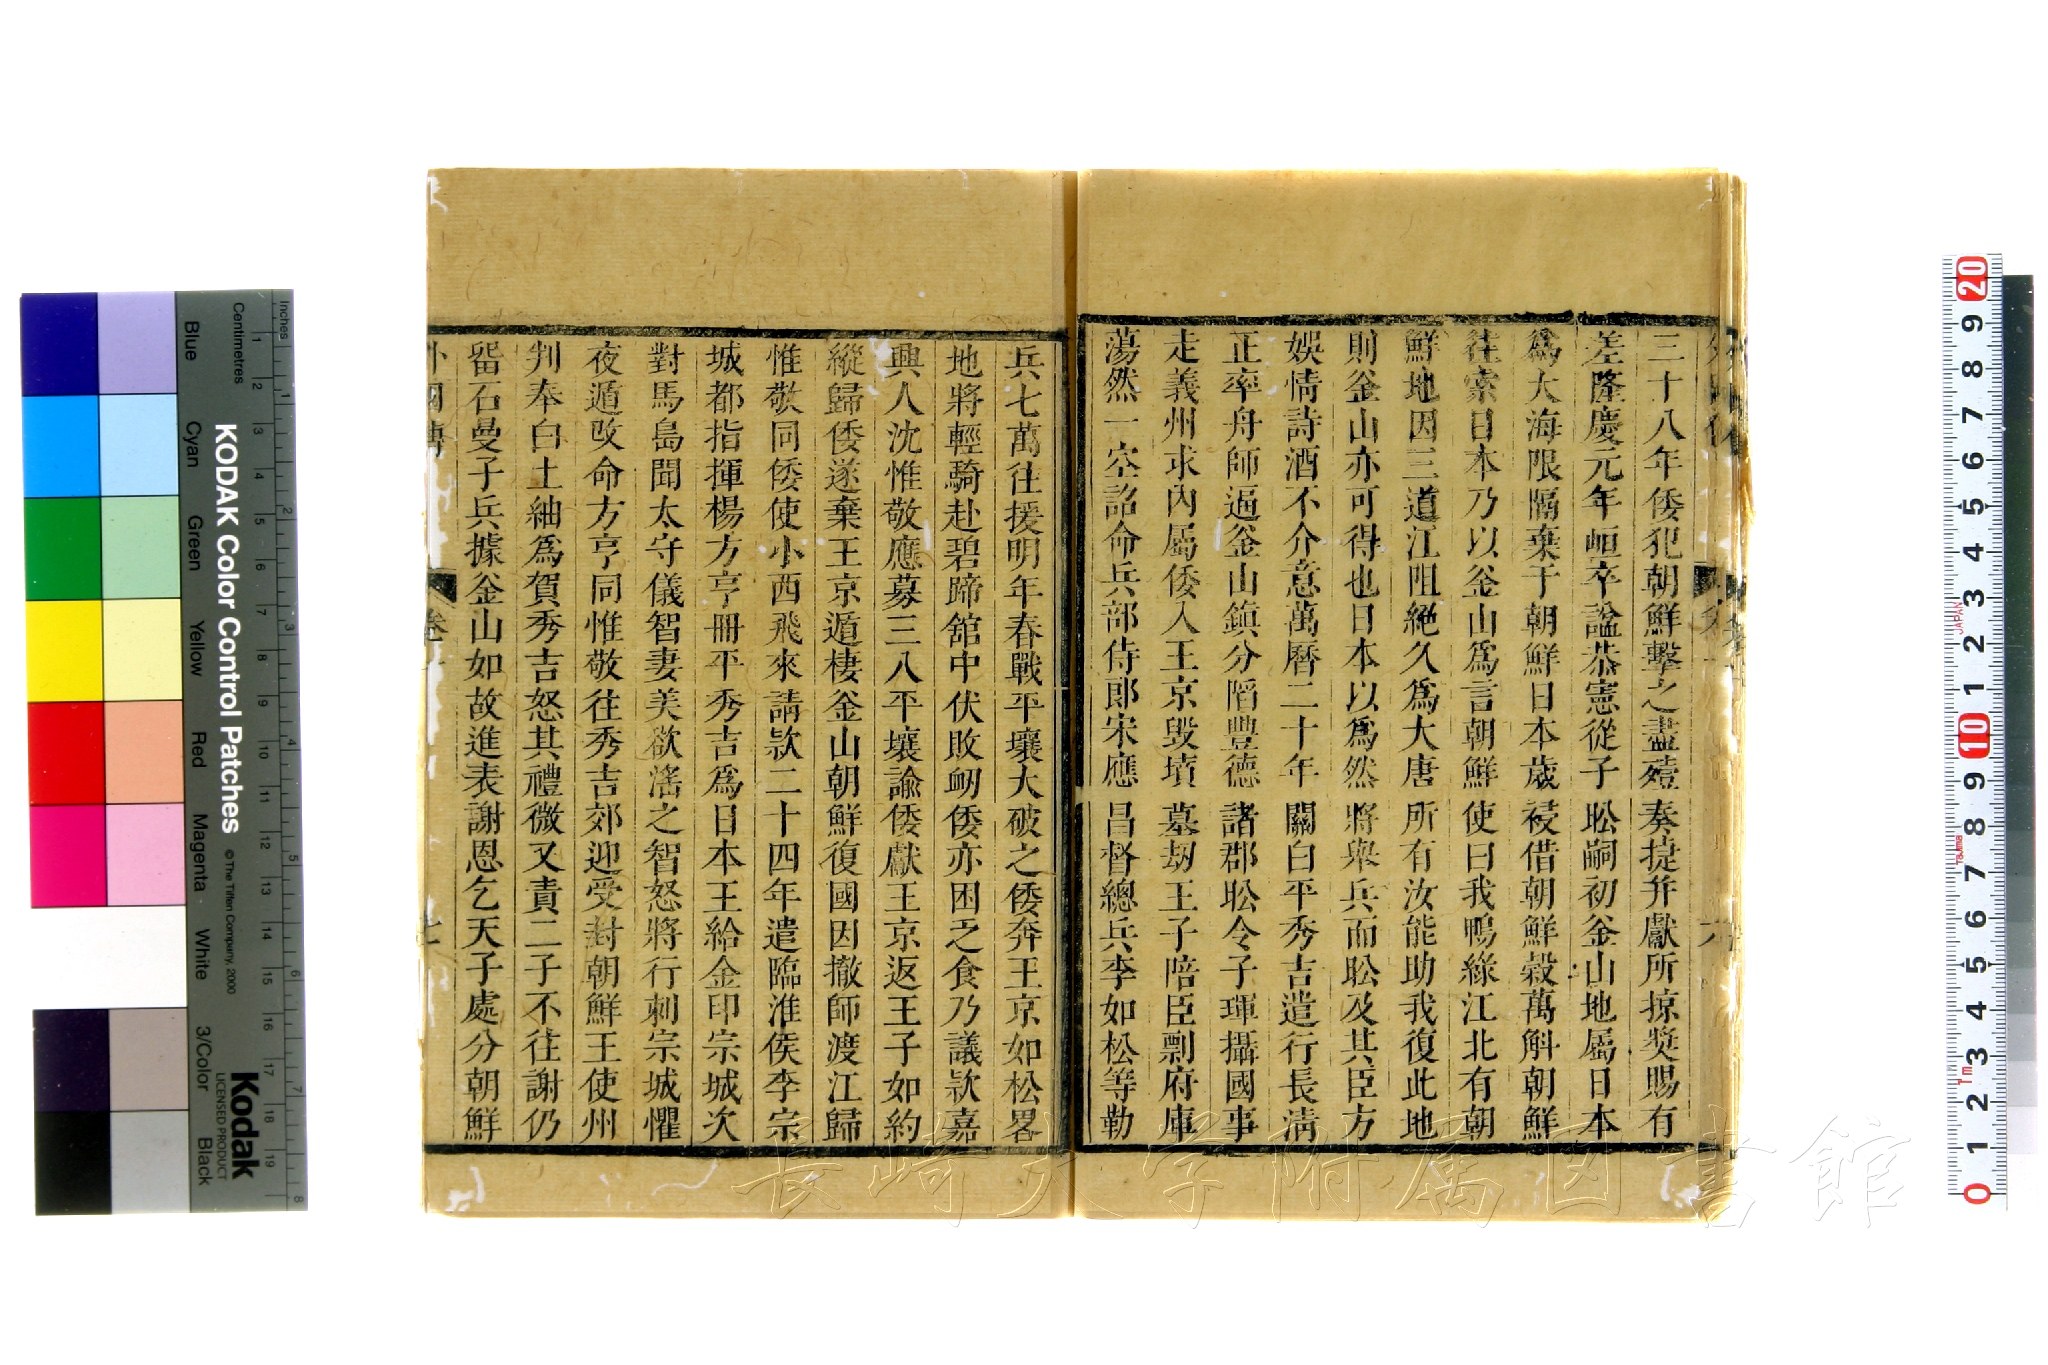 三十八年倭犯朝鮮擊之盡殪奏捷幷獻所掠奬賜有
差隆慶元年峘卒諡恭憲從子昖嗣初釜山地屬日本
爲大海限隔棄于朝鮮日本歲祲借朝鮮榖萬斛朝鮮
往索日本乃以釜山爲言朝鮮使曰我鴨緣江北有朝
鮮地因三道江阻絕久爲大唐所有汝能助我復此地
則釜山亦可得也日本以爲然將舉兵而昖及其臣方
娛情詩酒不介意萬曆二十年關白平秀吉遣行長淸
正率舟師逼釜山鎭分䧟豐德諸郡昖令子琿攝國事
走義州求內屬倭入王京毀墳墓刼王子陪臣剽府庫
蕩然一空詔命兵部侍郞宋應昌督總兵李如松等勒
兵七萬往援明年春戰平壤大破之倭奔王京如松畧
地將輕騎赴碧蹄舘中伏敗衂倭亦困乏食乃議欵嘉
興人沈惟敬應募三入平壤諭倭獻王京返王子如約
縱歸倭遂棄王京遁棲釜山朝鮮復國因撤師渡江歸
惟敬同倭使小西飛來請欵二十四年遣臨淮侯李宗
城都指揮楊方亨冊平秀吉爲日本王給金印宗城次
對馬島聞太守儀智妻美欲淫之智怒將行刺宗城懼
夜遁改命方亨同惟敬往秀吉郊迎受封朝鮮王使州
判奉白土紬爲賀秀吉怒其禮微又責二子不往謝仍
畱石曼子兵據釜山如故進表謝恩乞天子處分朝鮮
外國傳
卷
七
六
長崎大学附属図書館
KODAK Color Control Patches
© The Tiffen Company, 2000
Kodak
LICENSED PRODUCT
Blue
Cyan
Green
Yellow
Red
Magenta
White
3/Color
Black
Inches
1 2 3 4 5 6 7 8
Centimetres
1 2 3 4 5 6 7 8 9 10 11 12 13 14 15 16 17 18 19
20 9 8 7 6 5 4 3 2 1 10 9 8 7 6 5 4 3 2 1 0
JAPAN